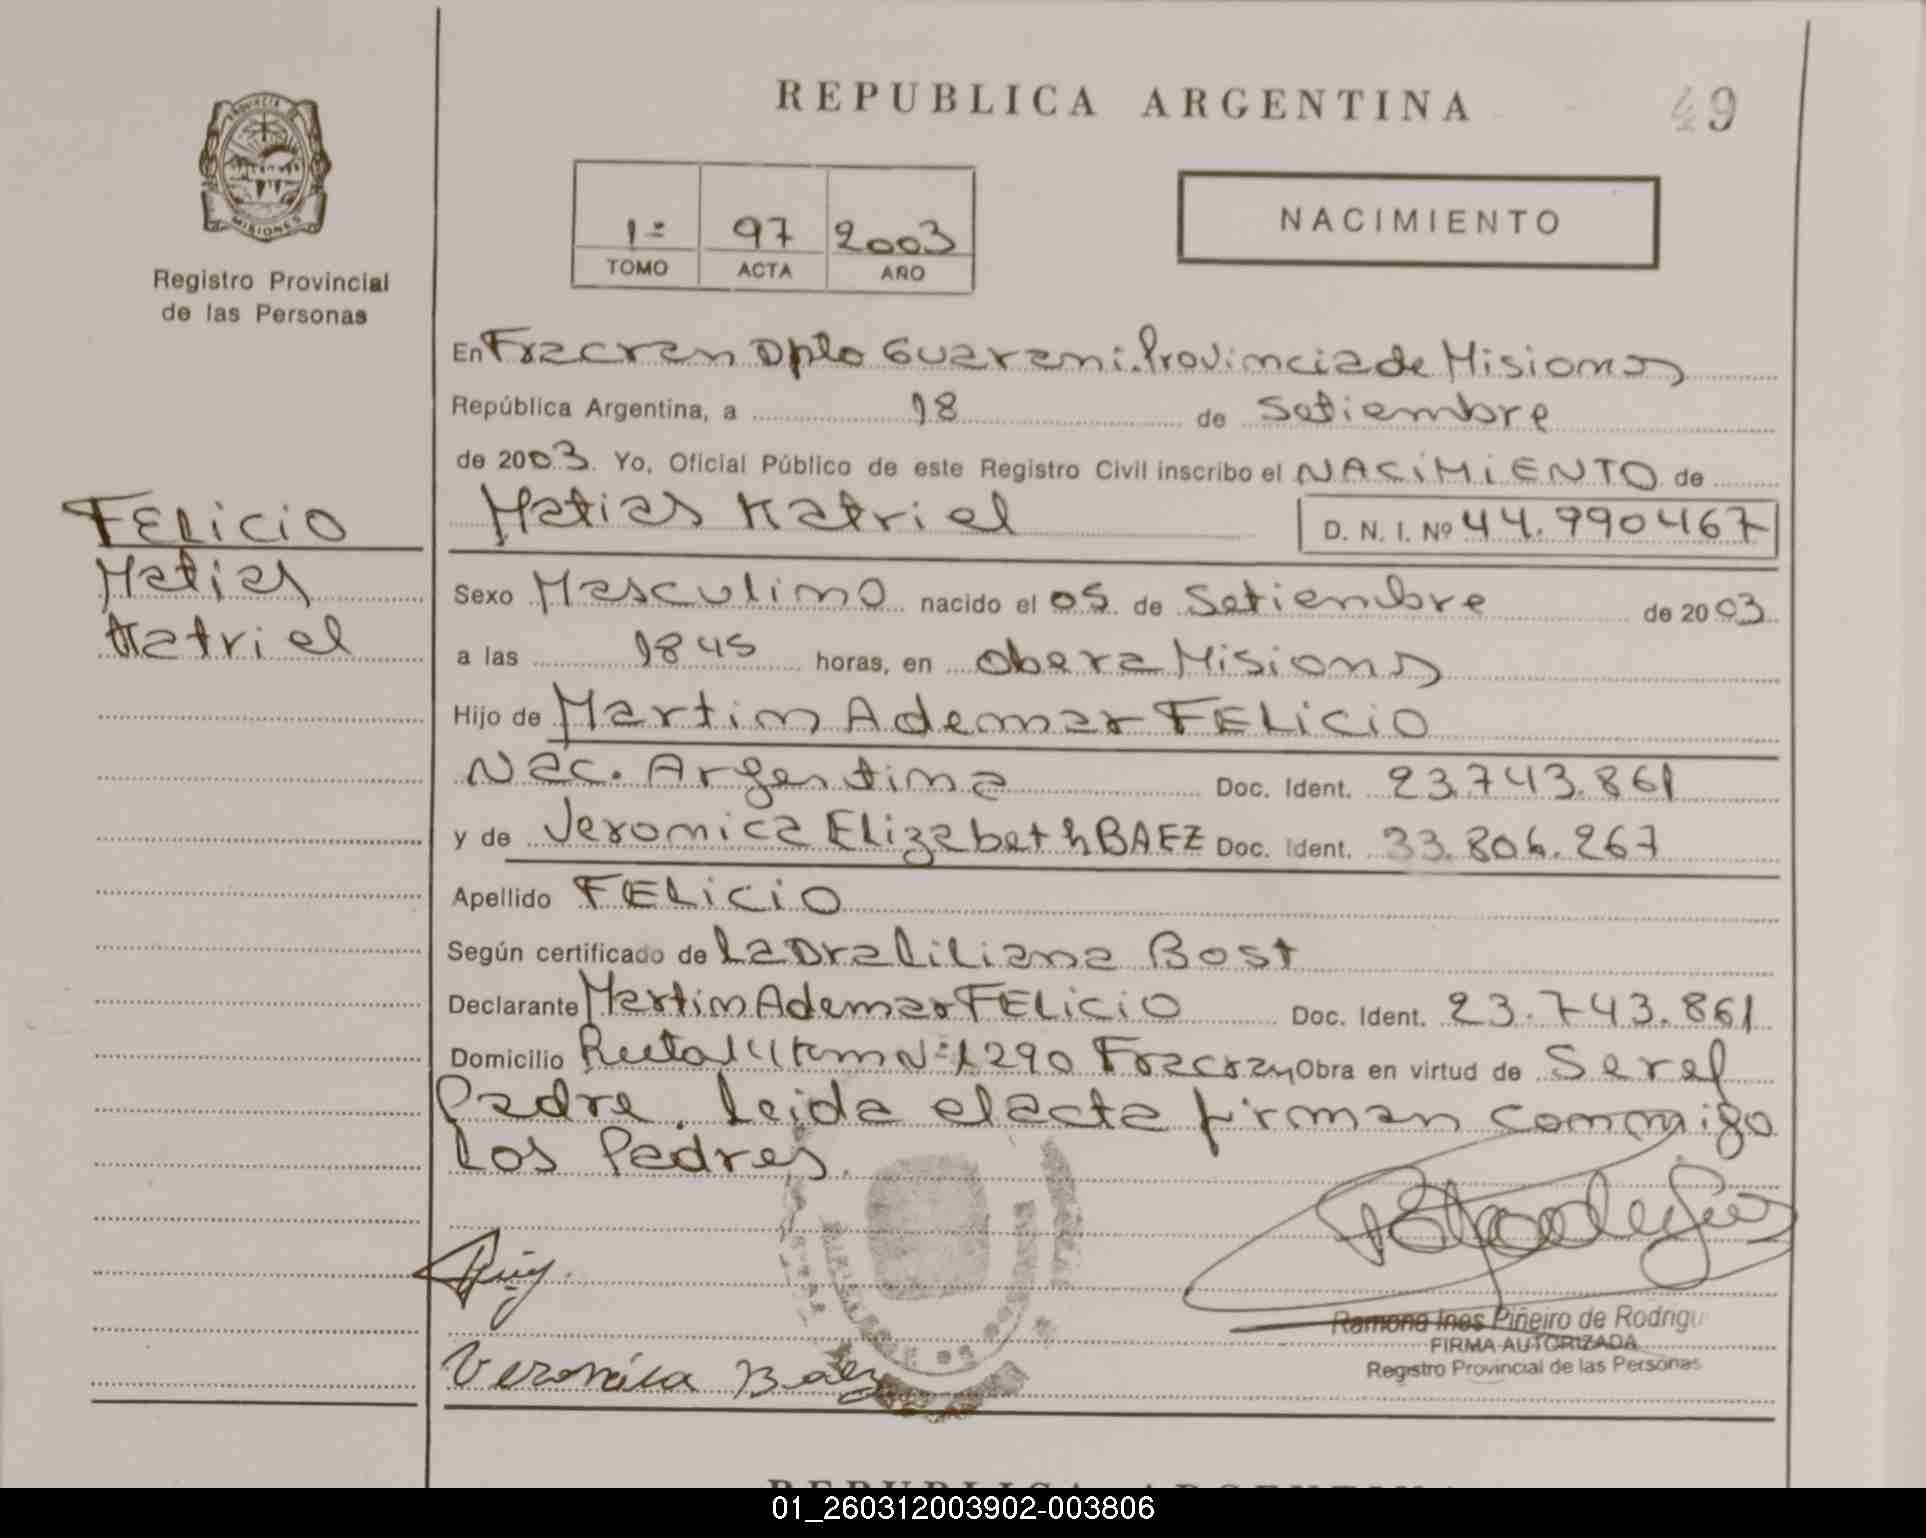 REPUBLICA ARGENTINA
49
PROVINCIA
MISIONES
Registro Provincial
de las Personas
1º 97 2003
TOMO ACTA AÑO
NACIMIENTO
En Fracran Dpto Guarani. Provincia de Misiones
República Argentina, a 18 de Setiembre
de 2003. Yo, Oficial Público de este Registro Civil inscribo el NACIMIENTO de
Matias Katriel D. N. I. Nº 44.990467
FELICIO
Matias
Katriel
Sexo Masculino nacido el 05 de Setiembre de 2003
a las 1845 horas, en Obera Misiones
Hijo de Martin Ademar FELICIO
Nac. Argentina Doc. Ident. 23.743.861
y de Veronica Elizabeth BAEZ Doc. Ident. 33.806.267
Apellido FELICIO
Según certificado de La Dra Liliana Bost
Declarante Martin Ademar FELICIO Doc. Ident. 23.743.861
Domicilio Ruta 14 Km Nº 1290 Fracran Obra en virtud de Ser el
Padre. Leida el acta firman conmigo
Los Padres.
Veronica Baez
Ramona Ines Piñeiro de Rodrigu
FIRMA AUTORIZADA
Registro Provincial de las Personas
REPUBLICA ARGENTINA
01_260312003902-003806